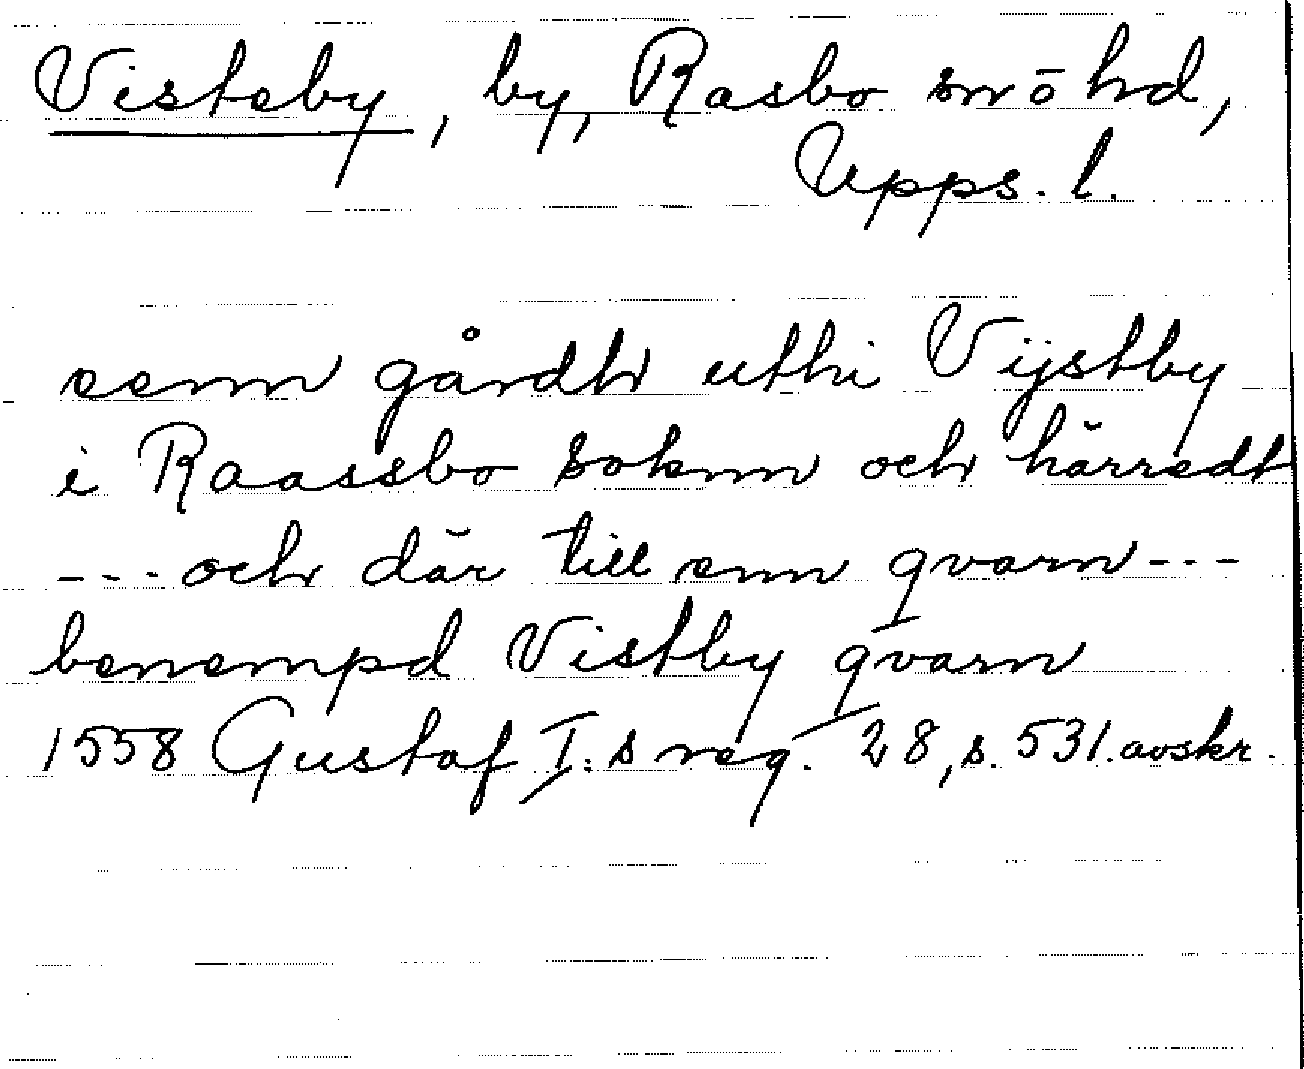 Visteby, by, Rasbo sn ō hd,
Upps. l.
eenn gårdh uthi Vijstby
i Raassbo soknn och härredh
--- och där till enn qvarn ---
benempd Vistby qvarn
1558 Gustaf I.s reg. 28, s. 531. avskr.